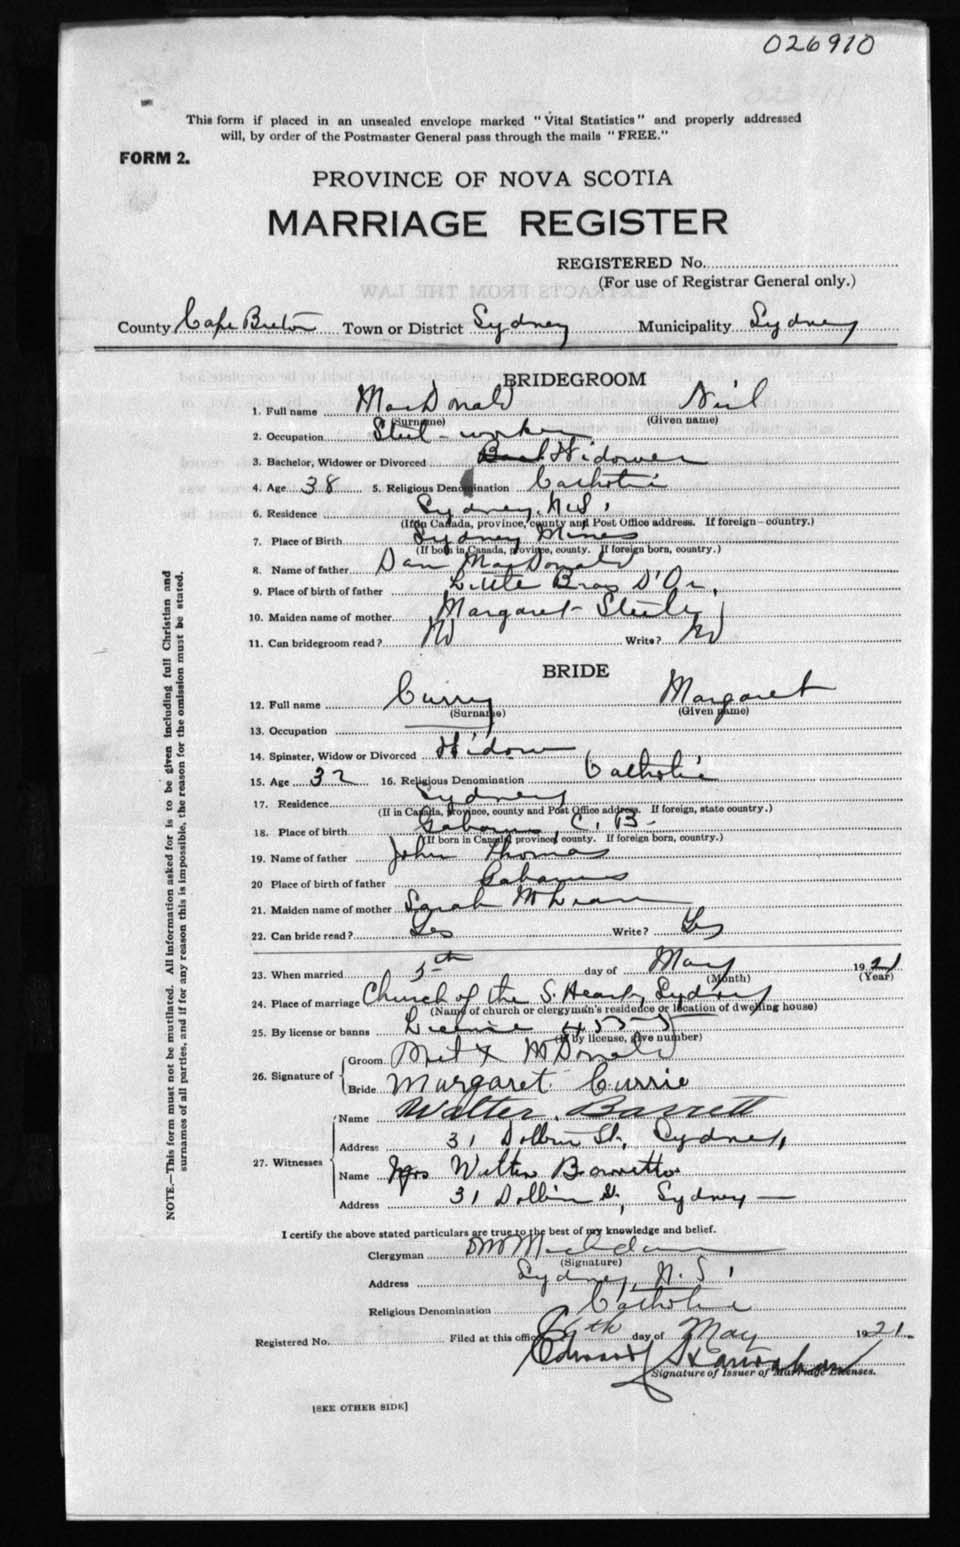 026910
This form if placed in an unsealed envelope marked "Vital Statistics" and properly addressed
will, by order of the Postmaster General pass through the mails "FREE."
FORM 2.
PROVINCE OF NOVA SCOTIA
MARRIAGE REGISTER
REGISTERED No.
(For use of Registrar General only.)
County Cape Breton Town or District Sydney Municipality Sydney
BRIDEGROOM
1. Full name MacDonald Neil
(Surname) (Given name)
2. Occupation Steel-worker
3. Bachelor, Widower or Divorced Widower
4. Age 38 5. Religious Denomination Catholic
6. Residence Sydney, N.S.
(If in Canada, province, county and Post Office address. If foreign-country.)
7. Place of Birth Sydney Mines
(If born in Canada, province, county. If foreign born, country.)
8. Name of father Dan MacDonald
9. Place of birth of father Little Bras D'Or
10. Maiden name of mother Margaret Steele
11. Can bridegroom read? No Write? No
BRIDE
12. Full name Curry Margaret
(Surname) (Given name)
13. Occupation
14. Spinster, Widow or Divorced Widow
15. Age 32 16. Religious Denomination Catholic
17. Residence Sydney
(If in Canada, province, county and Post Office address. If foreign, state country.)
18. Place of birth Gabarus, C. B.
(If born in Canada province, county. If foreign born, country.)
19. Name of father John Thomas
20 Place of birth of father Gabarus
21. Maiden name of mother Sarah McLean
22. Can bride read? Yes Write? Yes
23. When married 5th day of May 1921
(Month) (Year)
24. Place of marriage Church of the S. Heart, Sydney
(Name of church or clergyman's residence or location of dwelling house)
25. By license or banns License
(If by license, give number)
26. Signature of
Groom Neil X McDonald
Bride Margaret Currie
27. Witnesses
Name Walter Barrett
Address 31 Dolbin St, Sydney,
Name Mrs Walter Barrett
Address 31 Dolbin St, Sydney
I certify the above stated particulars are true to the best of my knowledge and belief.
Clergyman
(Signature)
Address Sydney, N.S.
Religious Denomination Catholic
Registered No. Filed at this office 6th day of May 1921.
Edward
Signature of Issuer of Marriage Licenses.
[SEE OTHER SIDE]
NOTE.—This form must not be mutilated. All information asked for is to be given including full Christian and
surnames of all parties, and if for any reason this is impossible, the reason for the omission must be stated.